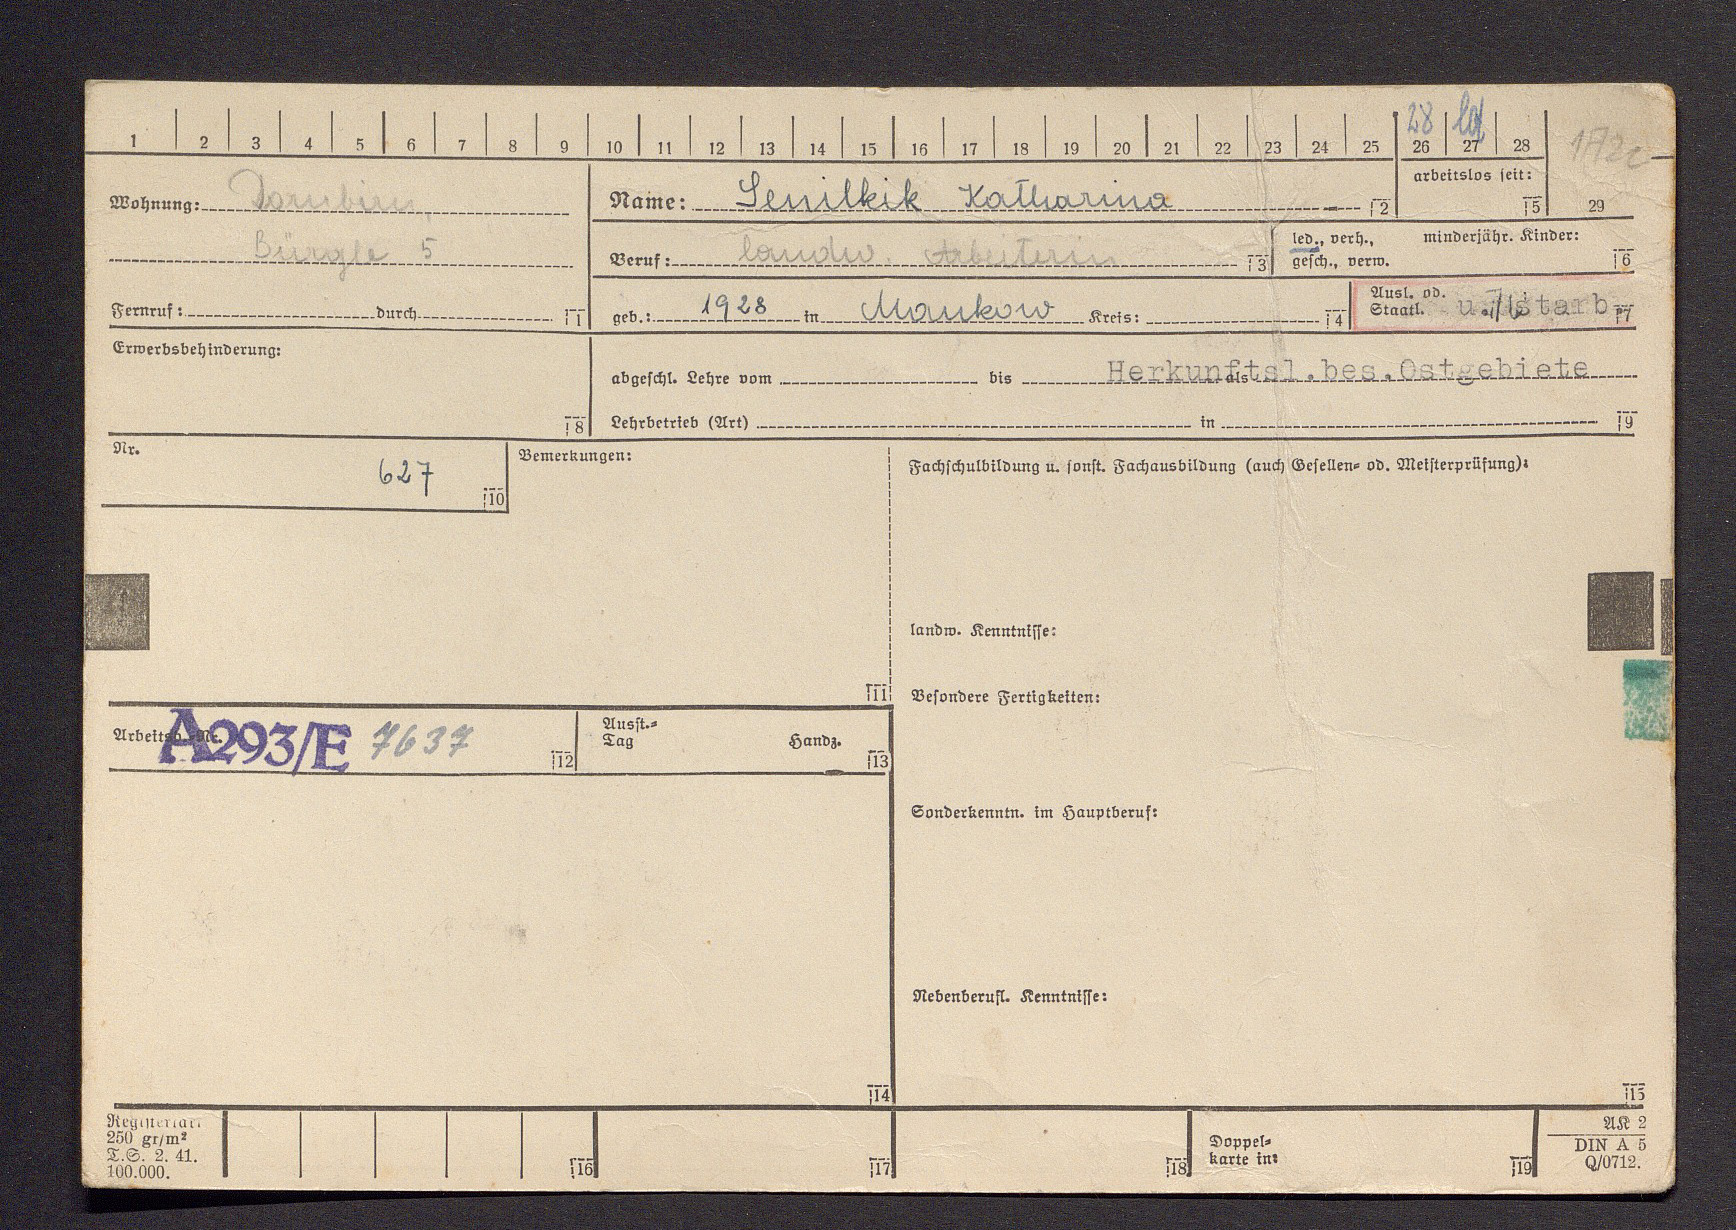 28
1 2 3 4 5 6 7 8 9 10 11 12 13 14 15 16 17 18 19 20 21 22 23 24 25 26 27 28
arbeitslos seit:
5
29
Wohnung: Dornbirn,
Bürgle 5
Fernruf: durch 1
Name: Senilkik Katharina 2
Beruf: landw. Arbeiterin 3
led., verh., minderjähr. Kinder:
gesch., verw. 6
geb.: 1928 in Mankow Kreis: 4
Ausl. od.
Staatl. 7
Erwerbsbehinderung:
8
Herkunftsl.bes.Ostgebiete
abgeschl. Lehre vom bis als
Lehrbetrieb (Art) in 9
Nr.
627
10
Bemerkungen:
11
Fachschulbildung u. sonst. Fachausbildung (auch Gesellen= od. Meisterprüfung):
landw. Kenntnisse:
Besondere Fertigkeiten:
Sonderkenntn. im Hauptberuf:
Nebenberufl. Kenntnisse:
15
Arbeitsb.=Nr. A293/E 7637 12
Ausst.=
Tag Handz. 13
14
Registerkart
250 gr/m²
T.S. 2. 41.
100.000.
16
17
18
Doppel=
karte in: 19
AK 2
DIN A 5
Q/0712.